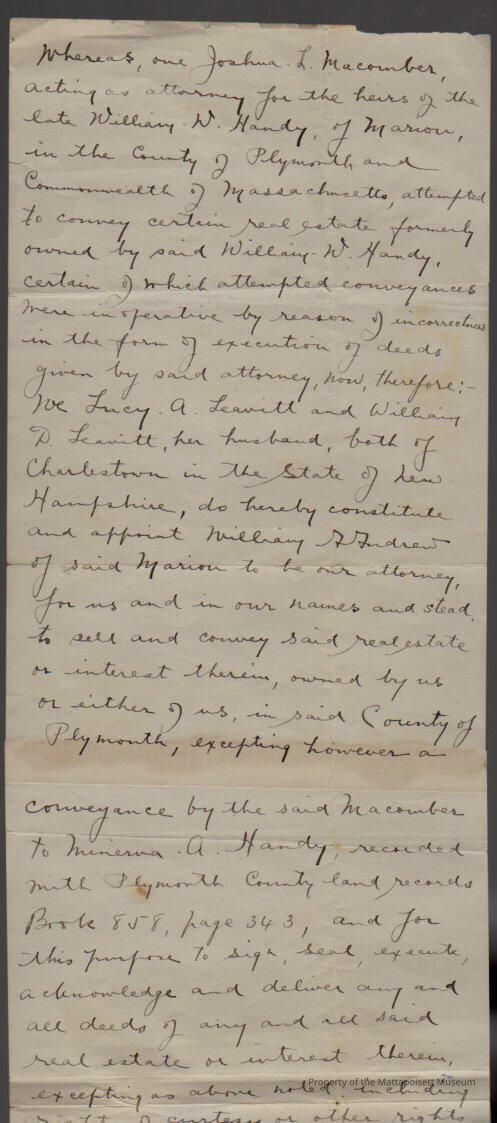 Whereas, one Joshua L. Macomber,
acting as attorney for the heirs of the
late William W. Handy, of Marion,
in the County of Plymouth and
Commonwealth of Massachusetts, attempted
to convey certain real estate formerly
owned by said William W. Handy,
certain of which attempted conveyances
were inoperative by reason of incorrectness
in the form of execution of deeds
given by said attorney, now, therefore:-
We Lucy A. Leavitt and William
D. Leavitt, her husband, both of
Charlestown in the State of New
Hampshire, do hereby constitute
and appoint William Andrew
of said Marion to be our attorney,
for us and in our names and stead,
to sell and convey said real estate
or interest therein, owned by us
or either of us, in said County of
Plymouth, excepting however a
conveyance by the said Macomber
to Minerva A. Handy, recorded
with Plymouth County land records
Book 858, page 343, and for
this purpose to sign, seal, execute,
acknowledge and deliver any and
all deeds of any and all said
real estate or interest therein,
Property of the Mattapoisett Museum
excepting as above noted including
right of curtesy or other rights